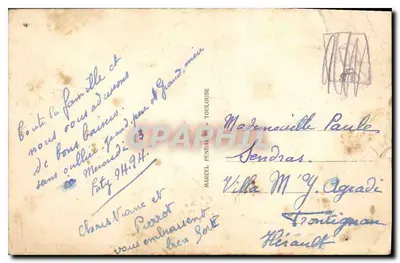 Toute la famille et
nous vous adressons
de bons baisers
sans oublier Grand père et Grand mère
Christiane et
Pierrot
vous embrassent
bien fort
MARCEL PENDARIES TOULOUSE
Mademoiselle Paule
Sendras
Villa M Y Agradi
Frontignan
Hérault
CPARAMA